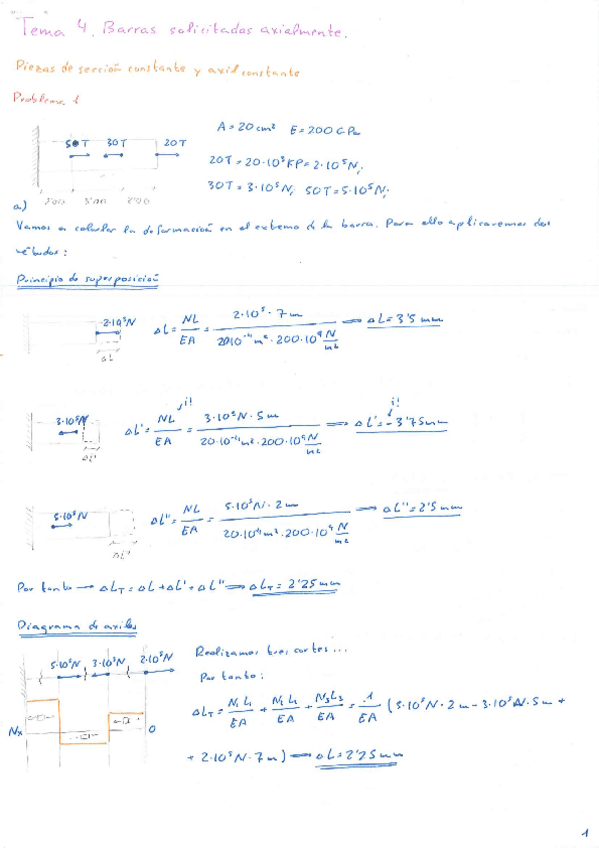 Tema 4. Barras solicitadas axialmente.
Piezas de sección constante y axil constante
Problema 1
A = 20 cm² E = 200 GPa
50T 30T 20T
20T = 20·10³ KP = 2·10⁵ N;
30T = 3·10⁵ N; 50T = 5·10⁵ N;
2'00 3'00 2'00
a)
Vamos a calcular la deformación en el extremo de la barra. Para ello aplicaremos dos
métodos:
Principio de superposición
2·10⁵N ΔL = NL/EA = 2·10⁵·7m / 20·10⁻⁴m²·200·10⁹ N/m² ⟹ ΔL = 3'5 mm
ΔL
¡! ¡!
3·10⁵N ΔL' = NL/EA = 3·10⁵N·5m / 20·10⁻⁴m²·200·10⁹ N/m² ⟹ ΔL' = -3'75mm
ΔL'
5·10⁵N ΔL'' = NL/EA = 5·10⁵N·2m / 20·10⁻⁴m²·200·10⁹ N/m² ⟹ ΔL'' = 2'5 mm
Por tanto → ΔL_T = ΔL + ΔL' + ΔL'' ⟹ ΔL_T = 2'25 mm
Diagrama de axiles
5·10⁵N 3·10⁵N 2·10⁵N
Realizamos tres cortes...
Por tanto:
ΔL_T = N₁L₁/EA + N₂L₂/EA + N₃L₃/EA = 1/EA (5·10⁵N·2m - 3·10⁵N·5m +
+ 2·10⁵N·7m) ⟹ ΔL = 2'25mm
Nx 0
1